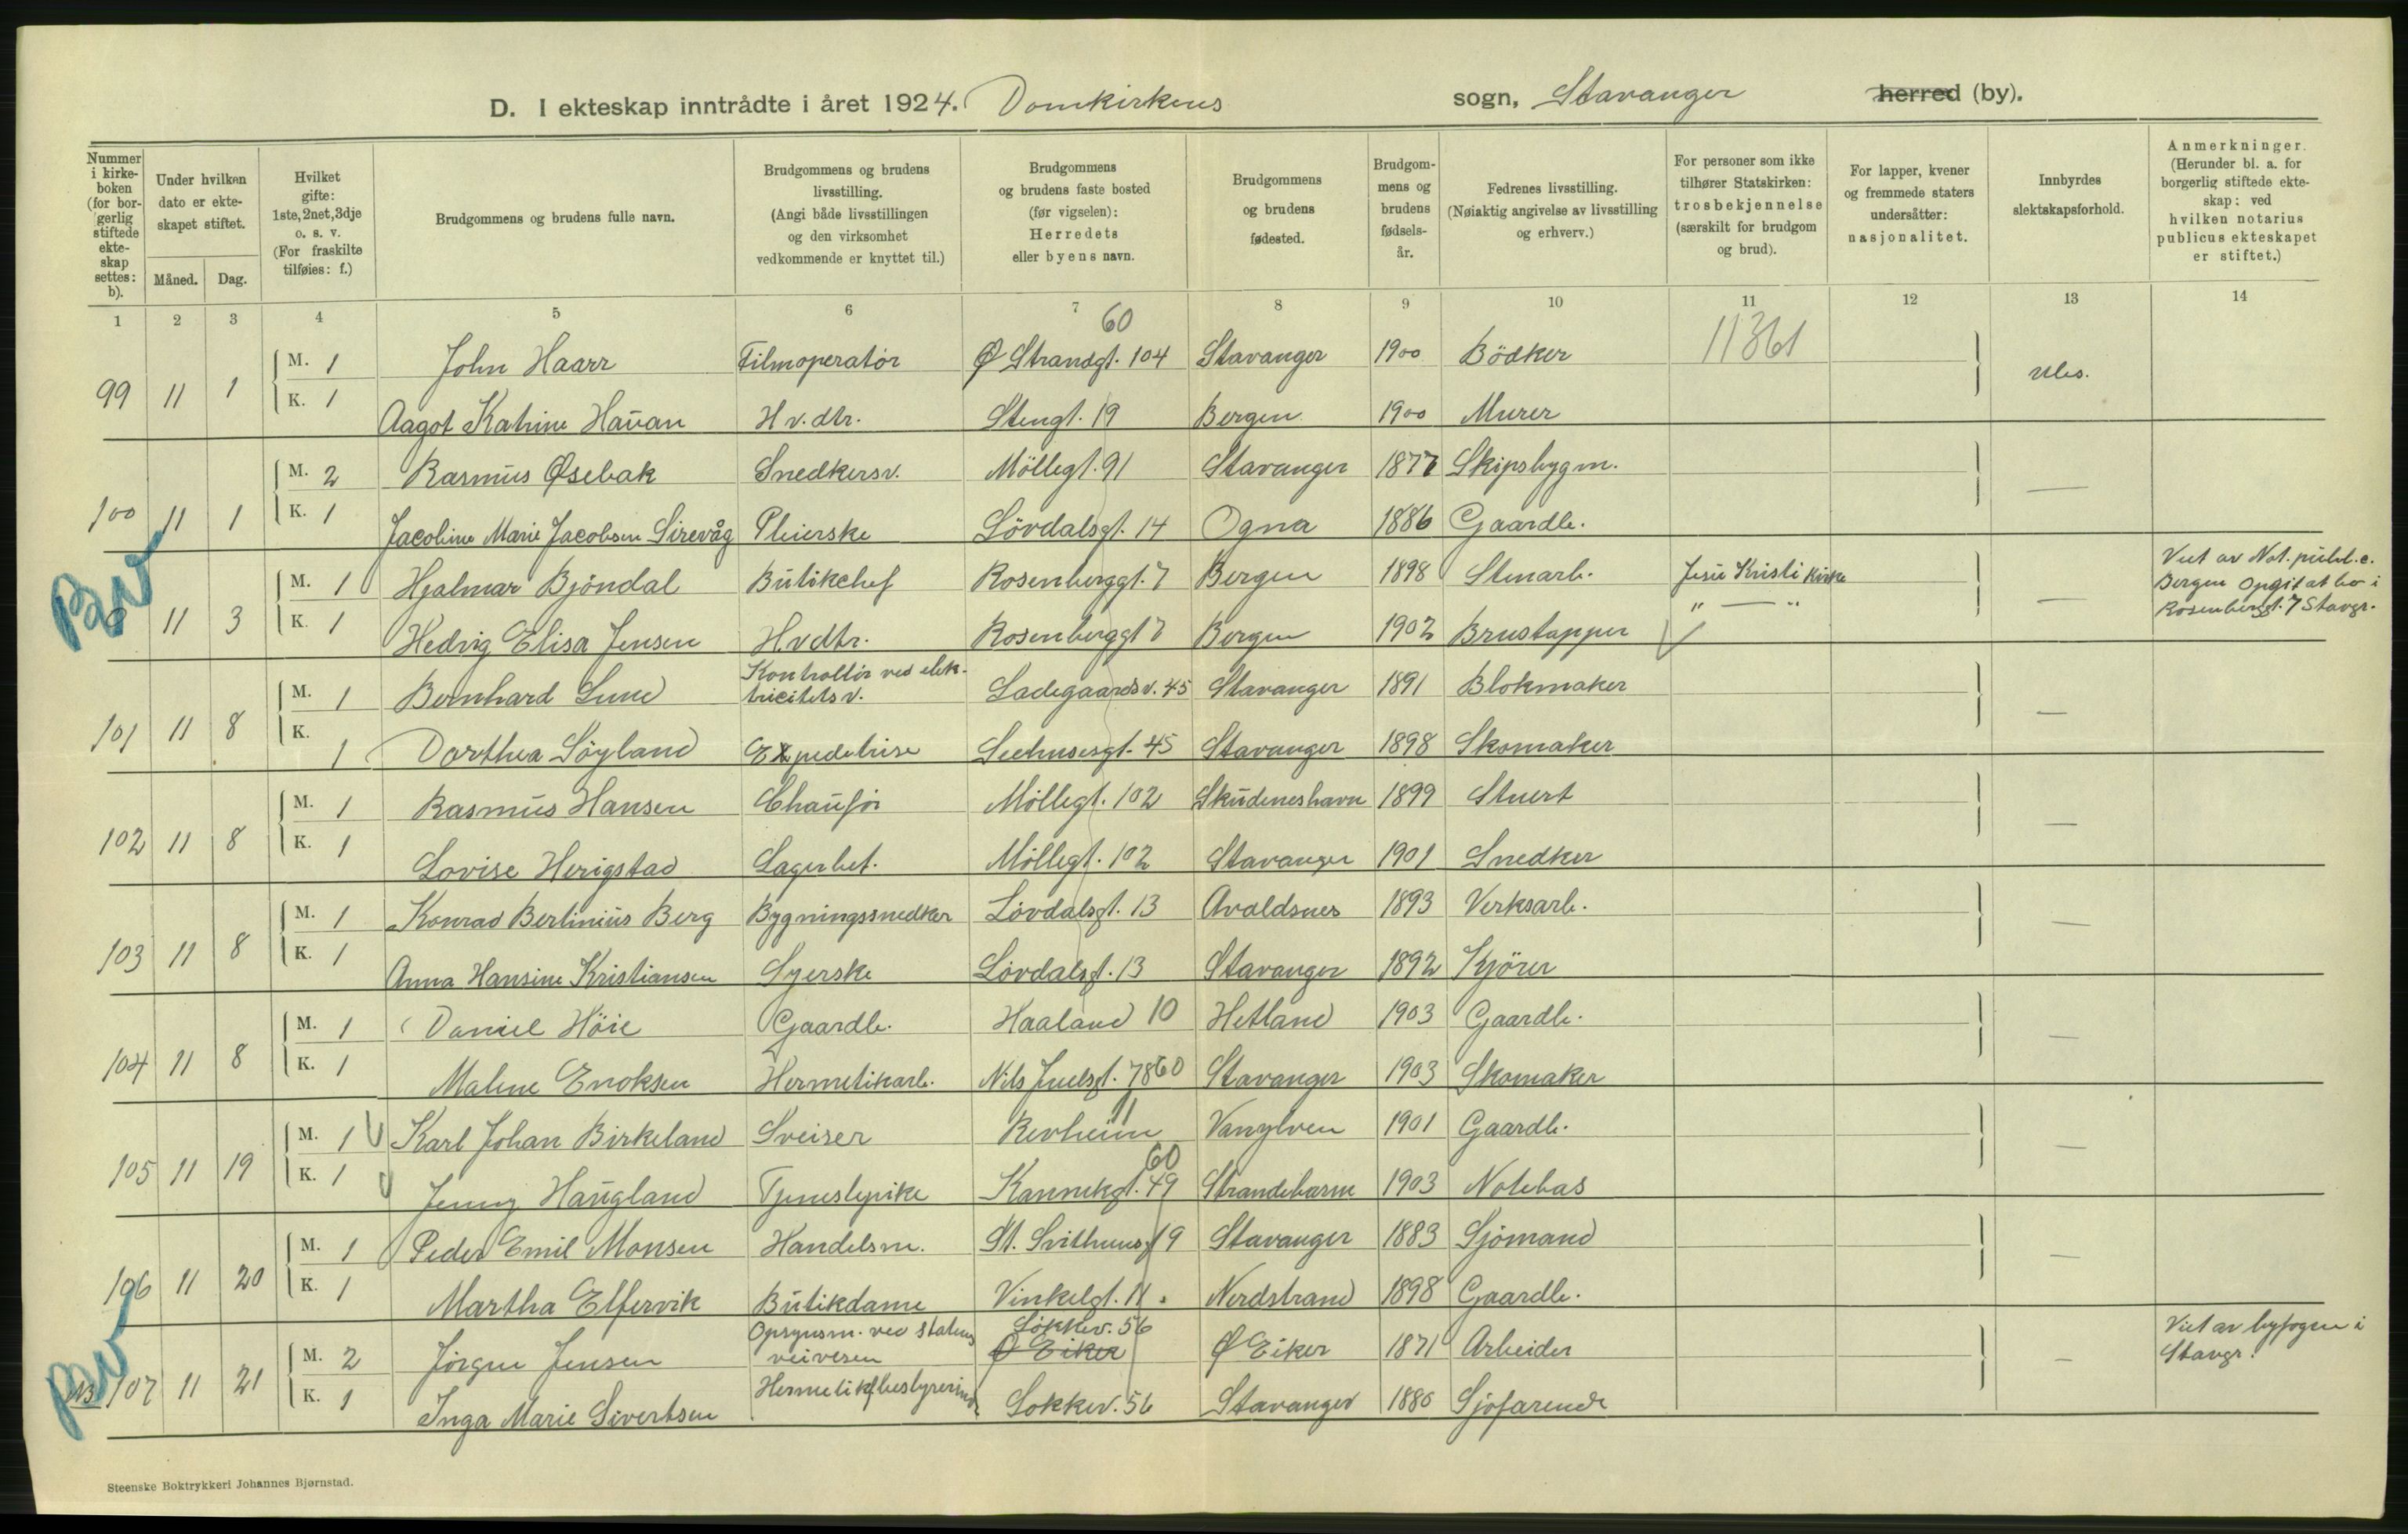 D. I ekteskap inntrådte i året 1924. Domkirkens sogn, Stavanger herred (by).
Nummer i kirkeboken (for borgerlig stiftede ekteskap settes: b).
Under hvilken dato er ekteskapet stiftet.
Måned.
Dag.
Hvilket gifte: 1ste, 2net, 3dje o. s. v. (For fraskilte tilføies: f.)
Brudgommens og brudens fulle navn.
Brudgommens og brudens livsstilling. (Angi både livsstillingen og den virksomhet vedkommende er knyttet til.)
Brudgommens og brudens faste bosted (før vigselen): Herredets eller byens navn.
Brudgommens og brudens fødested.
Brudgommens og brudens fødselsår.
Fedrenes livsstilling. (Nøiaktig angivelse av livsstilling og erhverv.)
For personer som ikke tilhører Statskirken: trosbekjennelse (særskilt for brudgom og brud).
For lapper, kvener og fremmede staters undersåtter: nasjonalitet.
Innbyrdes slektskapsforhold.
Anmerkninger. (Herunder bl. a. for borgerlig stiftede ekteskap: ved hvilken notarius publicus ekteskapet er stiftet.)
1 2 3 4 5 6 7 8 9 10 11 12 13 14
60 11361
99 11 1 M. 1 John Haarr Filmoperatör Ø Strandgt. 104 Stavanger 1900 Bödker
K. 1 Aagot Katrine Hauan H v. dtr. Stengt. 19 Bergen 1900 Murer
100 11 1 M. 2 Rasmus Øsebak Snedkersv. Möllegt. 91 Stavanger 1877 Skipsbygm. —
K. 1 Jacobine Marie Jacobsen Sirevåg Pleierske Lövdalsgt. 14 Ogna 1886 Gaardb.
11 3 M. 1 Hjalmar Bjöndal Butikchef Rosenberggt. 7 Bergen 1898 Stenarb. Jesu Kristi Kirke — Viet av Not. publ. c. Bergen Opgit at bo i Rosenberggt. 7 Stavgr.
K. 1 Hedvig Elisa Jensen H.v dtr. Rosenberggt 7 Bergen 1902 Brustapper " — "
101 11 8 M. 1 Bernhard Lund Kontrollör ved elektricitetsv. Ladegaardsv. 45 Stavanger 1891 Blokmaker —
K. 1 Dorthea Söyland Expeditrise Seehusesgt. 45 Stavanger 1898 Skomaker
102 11 8 M. 1 Rasmus Hansen Chauför Möllegt. 102 Skudeneshavn 1899 Stuert —
K. 1 Lovise Herigstad Lagerbet. Möllegt. 102 Stavanger 1901 Snedker
103 11 8 M. 1 Konrad Bertinius Berg Bygningssnedker Lövdalsgt. 13 Avaldsnes 1893 Verksarb. —
K. 1 Anna Hansine Kristiansen Syerske Lövdalsgt. 13 Stavanger 1892 Kjörer
104 11 8 M. 1 Daniel Höie Gaardb. Haaland 10 Hetland 1903 Gaardb. —
K. 1 Malene Enoksen Hermetikarb. Nils Juelsgt. 78 60 Stavanger 1903 Skomaker
105 11 19 M. 1 Karl Johan Birkeland Sveiser Revheim 11 Vanylven 1901 Gaardb. —
K. 1 Jenny Haugland Tjenestepike Kannikgt. 49 60 Strandebarm 1903 Notebas
106 11 20 M. 1 Peder Emil Monsen Handelsm. St. Svithunsgt 9 Stavanger 1883 Sjömand —
K. 1 Martha Elfervik Butikdame Vinkelgt. 11. Nerdstrand 1898 Gaardb.
107 11 21 M. 2 Jörgen Jensen Opsynsm. ved statens veivesen Lökkev. 56 Ø Eiker Ø Eiker 1871 Arbeider — Viet av byfogen i Stavgr.
K. 1 Inga Marie Sivertsen Hermetikfbestyrerinde Lökkev. 56 Stavanger 1880 Sjöfarende
Steenske Boktrykkeri Johannes Bjørnstad.